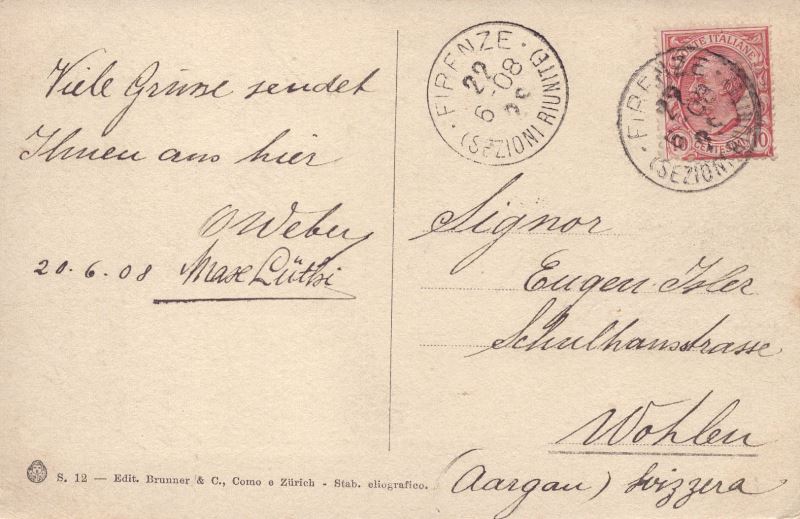 Viele Grüsse sendet
Ihnen aus hier
O Weber
20.6.08 Max Lüthi
S. 12 — Edit. Brunner & C., Como e Zürich - Stab. eliografico.
FIRENZE
22
6 08
(SEZIONI RIUNITE)
POSTE ITALIANE
CENTESIMI 10
FIRENZE
22
6 08
(SEZIONI RIUNITE)
Signor
Eugen Isler
Schulhausstrasse
Wohlen
(Aargau) Svizzera